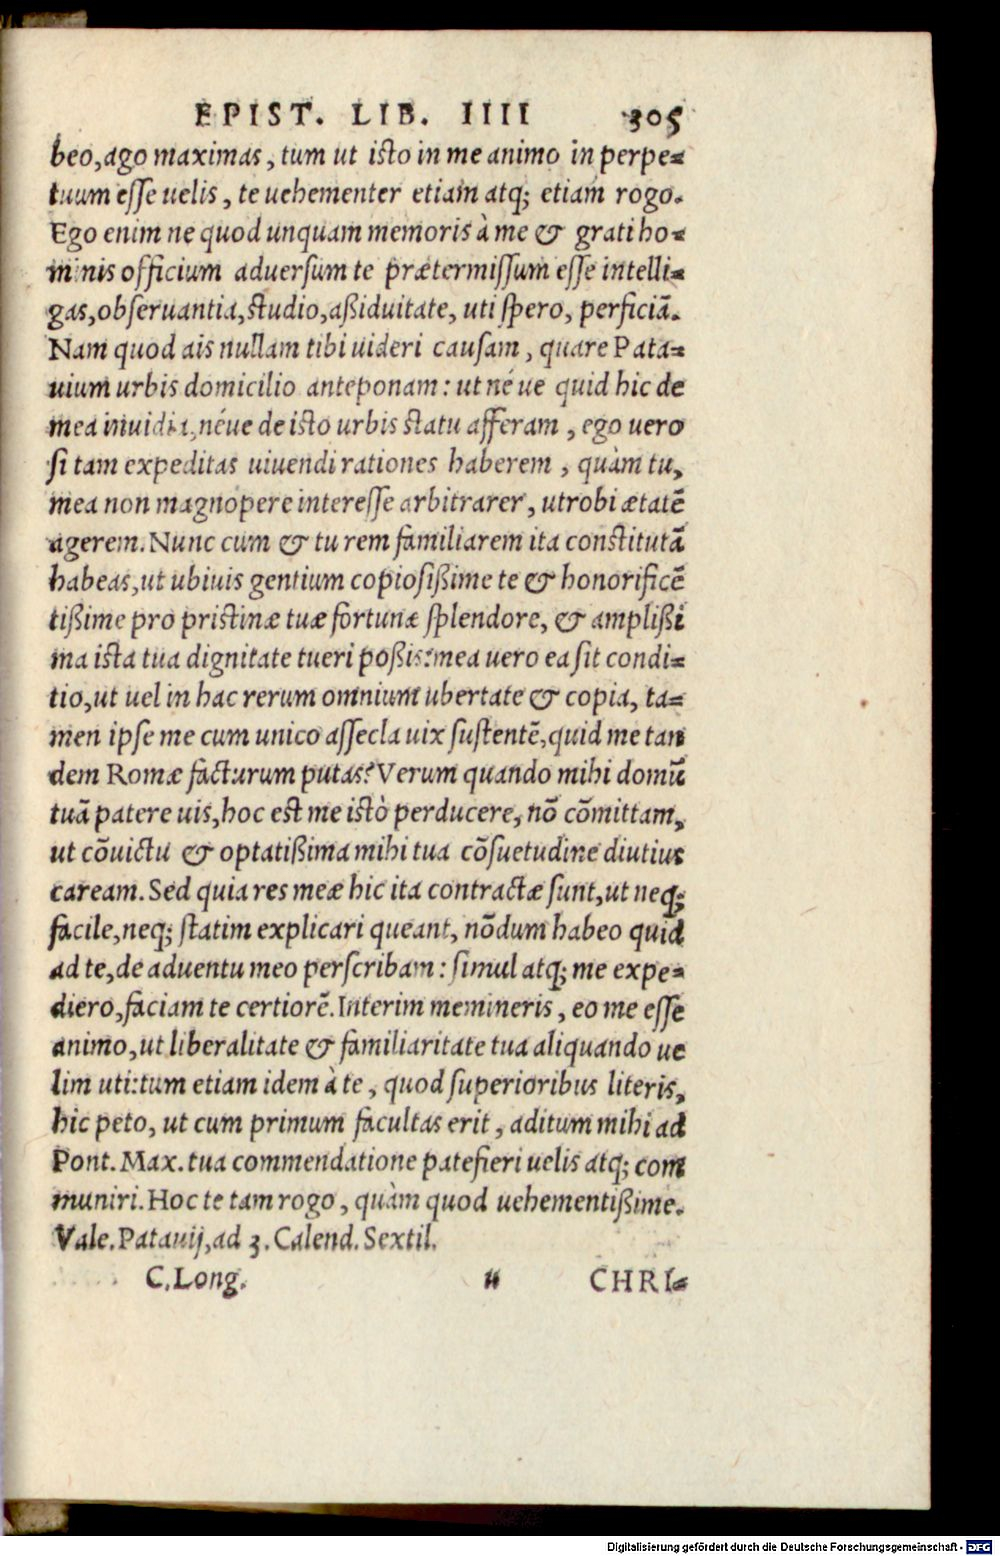 EPIST. LIB. IIII 305
beo, ago maximas, tum ut isto in me animo in perpe-
tuum esse uelis, te uehementer etiam atq; etiam rogo.
Ego enim ne quod unquam memoris à me & grati ho-
minis officium aduersum te prætermissum esse intelli-
gas, obseruantia, studio, aßiduitate, uti spero, perficiã.
Nam quod ais nullam tibi uideri causam, quare Pata-
uium urbis domicilio anteponam: ut né ue quid hic de
mea inuidia, néue de isto urbis statu afferam, ego uero
si tam expeditas uiuendi rationes haberem, quàm tu,
mea non magnopere interesse arbitrarer, utrobi ætatẽ
agerem. Nunc cum & tu rem familiarem ita constitutã
habeas, ut ubiuis gentium copiosißime te & honorificẽ
tißime pro pristinæ tuæ fortunæ splendore, & amplißi
ma ista tua dignitate tueri poßis: mea uero ea sit condi-
tio, ut uel in hac rerum omnium ubertate & copia, ta-
men ipse me cum unico assecla uix sustentẽ, quid me tan
dem Romæ facturum putas? Verum quando mihi domũ
tuã patere uis, hoc est me istò perducere, nõ cõmittam,
ut cõuictu & optatißima mihi tua cõsuetudine diutius
caream. Sed quia res meæ hic ita contractæ sunt, ut neq;
facile, neq; statim explicari queant, nõdum habeo quid
ad te, de aduentu meo perscribam: simul atq; me expe-
diero, faciam te certiorẽ. Interim memineris, eo me esse
animo, ut liberalitate & familiaritate tua aliquando ue
lim uti: tum etiam idem à te, quod superioribus literis,
hic peto, ut cum primum facultas erit, aditum mihi ad
Pont. Max. tua commendatione patefieri uelis atq; com
muniri. Hoc te tam rogo, quàm quod uehementißime.
Vale. Patauij, ad 3. Calend. Sextil.
C. Long. u CHRI-
Digitalisierung gefördert durch die Deutsche Forschungsgemeinschaft - DFG